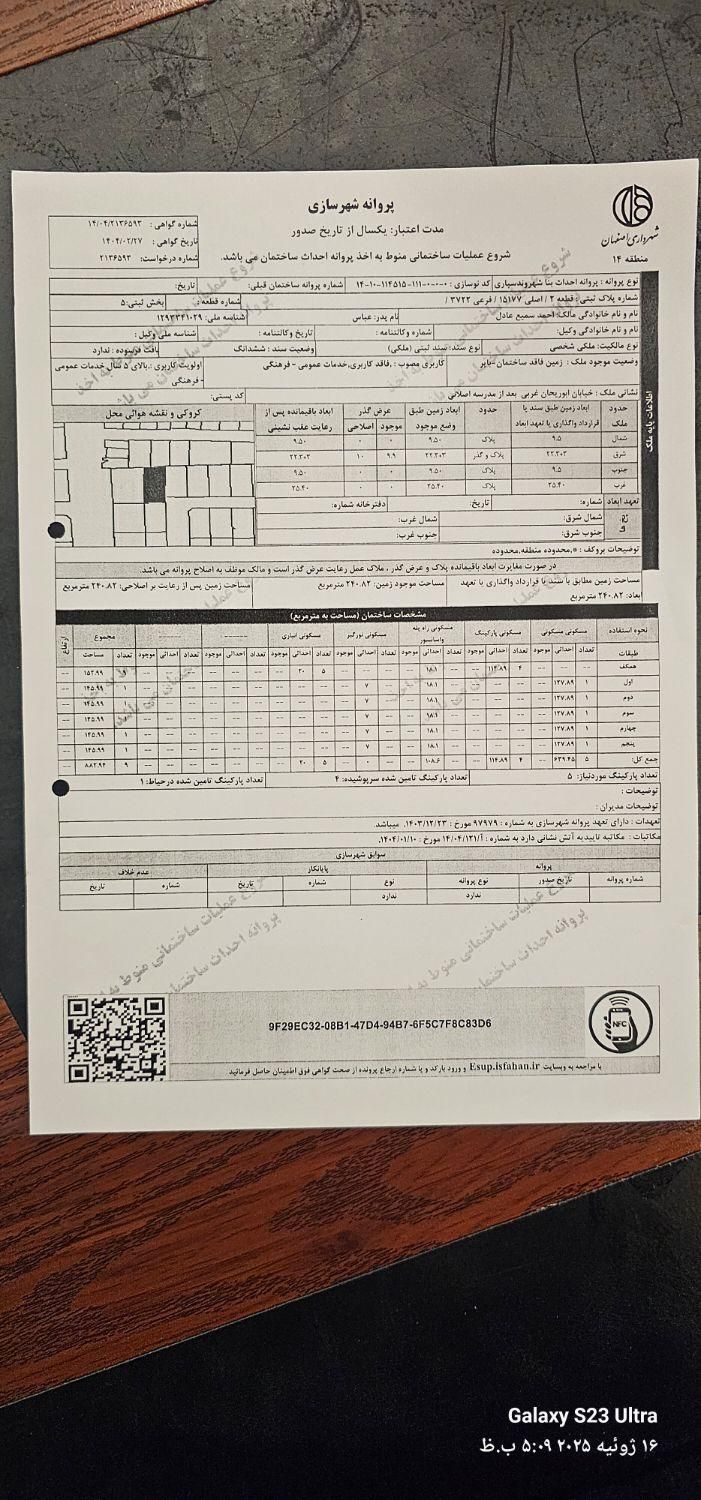 پروانه شهرسازی
مدت اعتبار: یکسال از تاریخ صدور
شروع عملیات ساختمانی منوط به اخذ پروانه احداث ساختمان می باشد.
شهرداری اصفهان
منطقه ۱۴
شماره گواهی : ۱۴/۰۴/۲۱۳۶۵۹۳
تاریخ گواهی : ۱۴۰۴/۰۲/۲۷
شماره درخواست: ۲۱۳۶۵۹۳
اطلاعات پایه ملک
نوع پروانه : پروانه احداث بنا شهروندسپاری کد نوسازی : ۰-۰-۰-۱۱۱-۱۱۴۵۱۵-۱۰-۱۴ شماره پروانه ساختمان قبلی: تاریخ:
شماره پلاک ثبتی: قطعه ۲ / اصلی ۱۵۱۷۷ / فرعی ۳۷۲۲ / شماره قطعه : بخش ثبتی: ۵
نام و نام خانوادگی مالک: احمد سمیع عادل نام پدر: عباس شناسه ملی: ۱۲۹۳۳۴۱۰۲۹
نام و نام خانوادگی وکیل: شماره وکالتنامه : تاریخ وکالتنامه : شناسه ملی وکیل :
نوع مالکیت: ملکی شخصی نوع سند: سند ثبتی (ملکی) وضعیت سند : ششدانگ بافت فرسوده : ندارد
وضعیت موجود ملک : زمین فاقد ساختمان-بایر کاربری مصوب : ,فاقد کاربری,خدمات عمومی - فرهنگی اولویت کاربری :.بالای ۵ سال,خدمات عمومی - فرهنگی
نشانی ملک : خیابان ابوریحان غربی بعد از مدرسه اصلانی کد پستی:
حدود ملک ابعاد زمین طبق سند یا قرارداد واگذاری یا تعهد ابعاد حدود ابعاد زمین طبق وضع موجود عرض گذر موجود اصلاحی ابعاد باقیمانده پس از رعایت عقب نشینی کروکی و نقشه هوائی محل
شمال ۹.۵ پلاک ۹.۵۰ ۰ ۰ ۹.۵۰
شرق ۲۲.۳۰۳ پلاک و گذر ۲۲.۳۰۳ ۹.۹ ۱۰ ۲۲.۳۰۳
جنوب ۹.۵ پلاک ۹.۵۰ ۰ ۰ ۹.۵۰
غرب ۲۵.۴۰ پلاک ۲۵.۴۰ ۰ ۰ ۲۵.۴۰
تعهد ابعاد شماره: تاریخ: دفترخانه شماره:
شمال شرق: شمال غرب:
جنوب شرق: جنوب غرب:
توضیحات بروکف : *,محدوده منطقه,محدوده
در صورت مغایرت ابعاد باقیمانده پلاک و عرض گذر ، ملاک عمل رعایت عرض گذر است و مالک موظف به اصلاح پروانه می باشد.
مساحت زمین مطابق با سند یا قرارداد واگذاری یا تعهد ابعاد: ۲۴۰.۸۲ مترمربع مساحت موجود زمین: ۲۴۰.۸۲ مترمربع مساحت زمین پس از رعایت بر اصلاحی: ۲۴۰.۸۲ مترمربع
مشخصات ساختمان (مساحت به مترمربع)
نحوه استفاده مسکونی مسکونی مسکونی پارکینگ مسکونی راه پله واسانسور مسکونی نورگیر مسکونی انباری ------ ------ مجموع ارتفاع
طبقات تعداد احداثی موجود تعداد احداثی موجود تعداد احداثی موجود تعداد احداثی موجود تعداد احداثی موجود تعداد احداثی موجود تعداد احداثی موجود تعداد مساحت
همکف -- -- -- ۴ ۱۱۴.۸۹ -- -- ۱۸.۱ -- -- -- -- ۵ ۲۰ -- -- -- -- -- -- -- ۱۵۲.۹۹ --
اول ۱ ۱۲۷.۸۹ -- -- -- -- -- ۱۸.۱ -- -- ۷ -- -- -- -- -- -- -- -- -- -- ۱ ۱۴۵.۹۹ --
دوم ۱ ۱۲۷.۸۹ -- -- -- -- -- ۱۸.۱ -- -- ۷ -- -- -- -- -- -- -- -- -- -- ۱ ۱۴۵.۹۹ --
سوم ۱ ۱۲۷.۸۹ -- -- -- -- -- ۱۸.۱ -- -- ۷ -- -- -- -- -- -- -- -- -- -- ۱ ۱۴۵.۹۹ --
چهارم ۱ ۱۲۷.۸۹ -- -- -- -- -- ۱۸.۱ -- -- ۷ -- -- -- -- -- -- -- -- -- -- ۱ ۱۴۵.۹۹ --
پنجم ۱ ۱۲۷.۸۹ -- -- -- -- -- ۱۸.۱ -- -- ۷ -- -- -- -- -- -- -- -- -- -- ۱ ۱۴۵.۹۹ --
جمع کل: ۵ ۶۳۹.۴۵ -- ۴ ۱۱۴.۸۹ -- -- ۱۰۸.۶ -- -- ۰ -- ۵ ۲۰ -- -- -- -- -- -- -- ۹ ۸۸۲.۹۴ --
تعداد پارکینگ موردنیاز: ۵ تعداد پارکینگ تامین شده سرپوشیده: ۴ تعداد پارکینگ تامین شده درحیاط: ۱
توضیحات :
توضیحات مدیران :
تعهدات : دارای تعهد پروانه شهرسازی به شماره : ۹۷۹۷۹ مورخ : ۱۴۰۳/۱۲/۲۳, میباشد.
مکاتبات : مکاتبه تاییدیه آتش نشانی دارد به شماره : ۱۴/۰۴/۱۲۱/آ مورخ : ۱۴۰۴/۰۱/۱۰.
سوابق شهرسازی
پروانه پایانکار عدم خلاف
شماره پروانه تاریخ صدور نوع پروانه نوع شماره تاریخ شماره تاریخ
ندارد ندارد
9F29EC32-08B1-47D4-94B7-6F5C7F8C83D6
NFC
با مراجعه به وبسایت Esup.isfahan.ir و ورود بارکد و یا شماره ارجاع پرونده از صحت گواهی فوق اطمینان حاصل فرمائید.
Galaxy S23 Ultra
۱۶ ژوئیه ۲۰۲۵ ۵:۰۹ ب.ظ